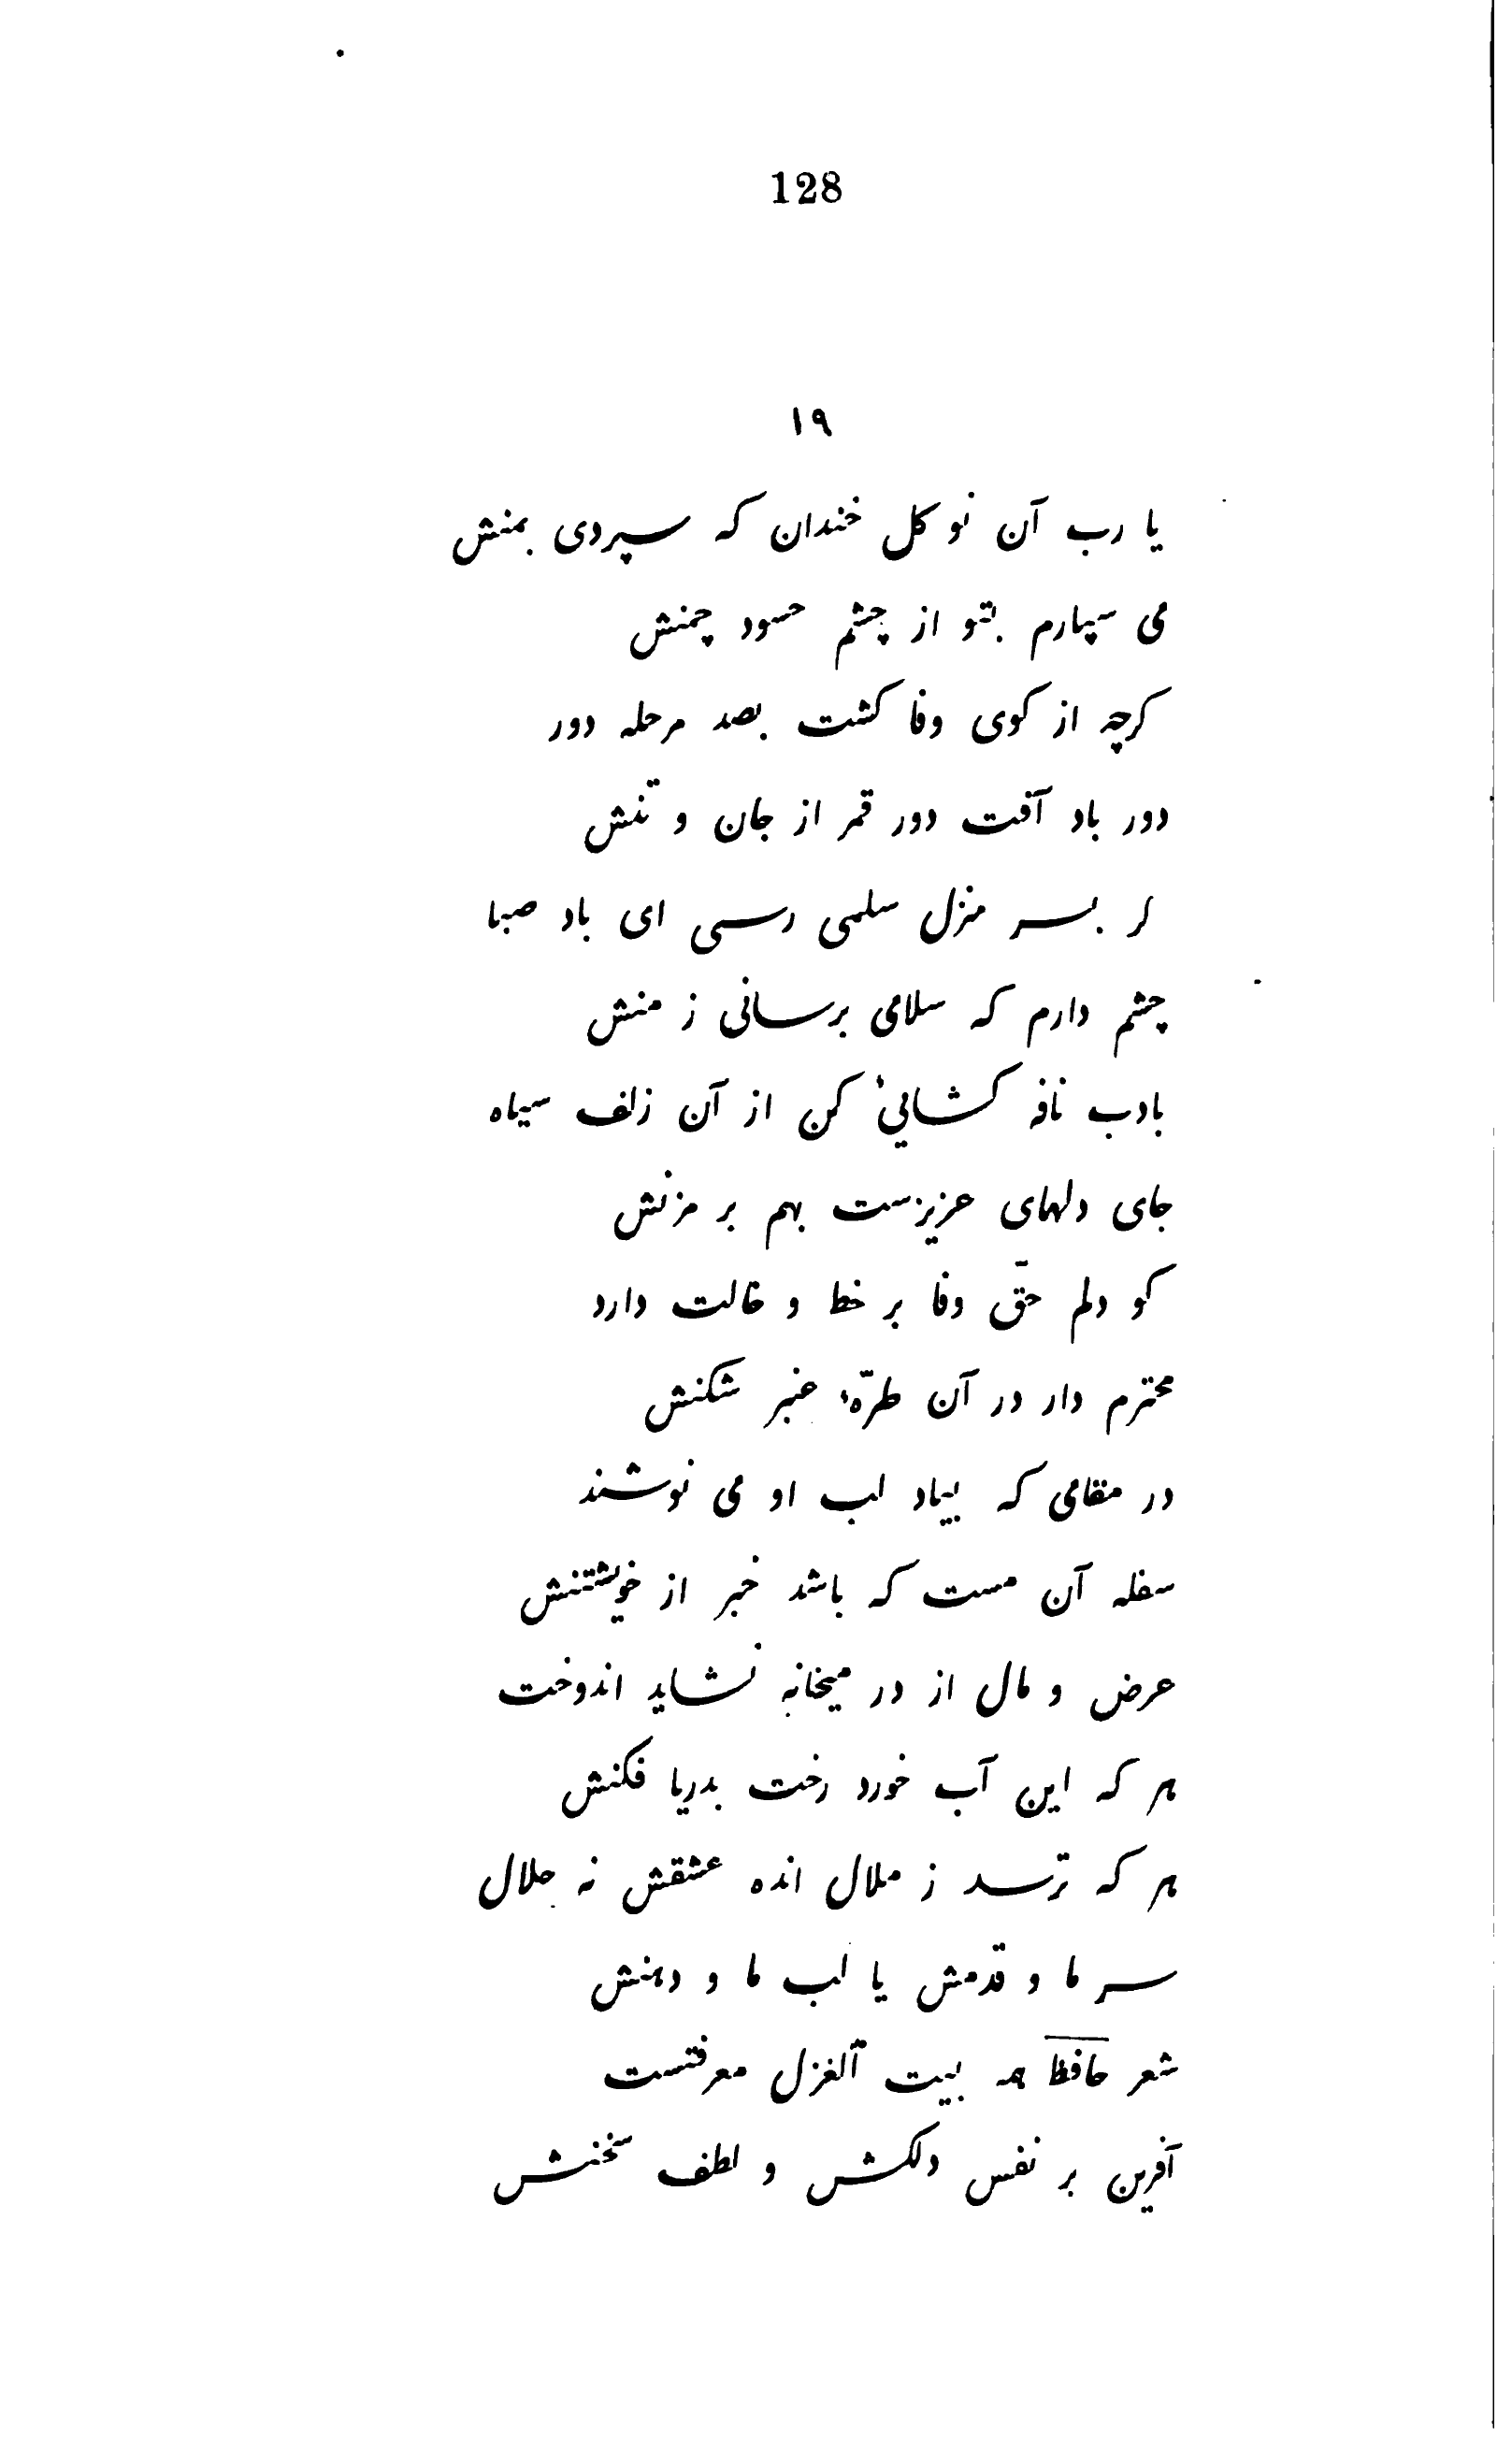 128
۱۹
یا رب آن نو کل خندان که سپردی بمنش
می سپارم بتو از چشم حسود چمنش
کرچه از کوی وفا کشت بصد مرحله دور
دور باد آفت دور قمر از جان و تنش
کر بسر منزل سلمی رسی ای باد صبا
چشم دارم که سلامی برسانی ز منش
بادب نافه کشاییٔ کن از آن زلف سیاه
جای دلهای عزیزست بهم بر مزنش
کو دلم حقّ وفا بر خط و خالت دارد
محترم دار در آن طرّهٔ عنبر شکنش
در مقامی که بیاد لب او می نوشند
سفله آن مست که باشد خبر از خویشتنش
عرض و مال از در میخانه نشاید اندوخت
هر که این آب خورد رخت بدریا فکنش
هر که ترسد ز ملال انده عشقش نه حلال
سر ما و قدمش یا لب ما و دهنش
شعر حافظ همه بیت ٱلغزل معرفتست
آفرین بر نفس دلکش و لطف سخنش